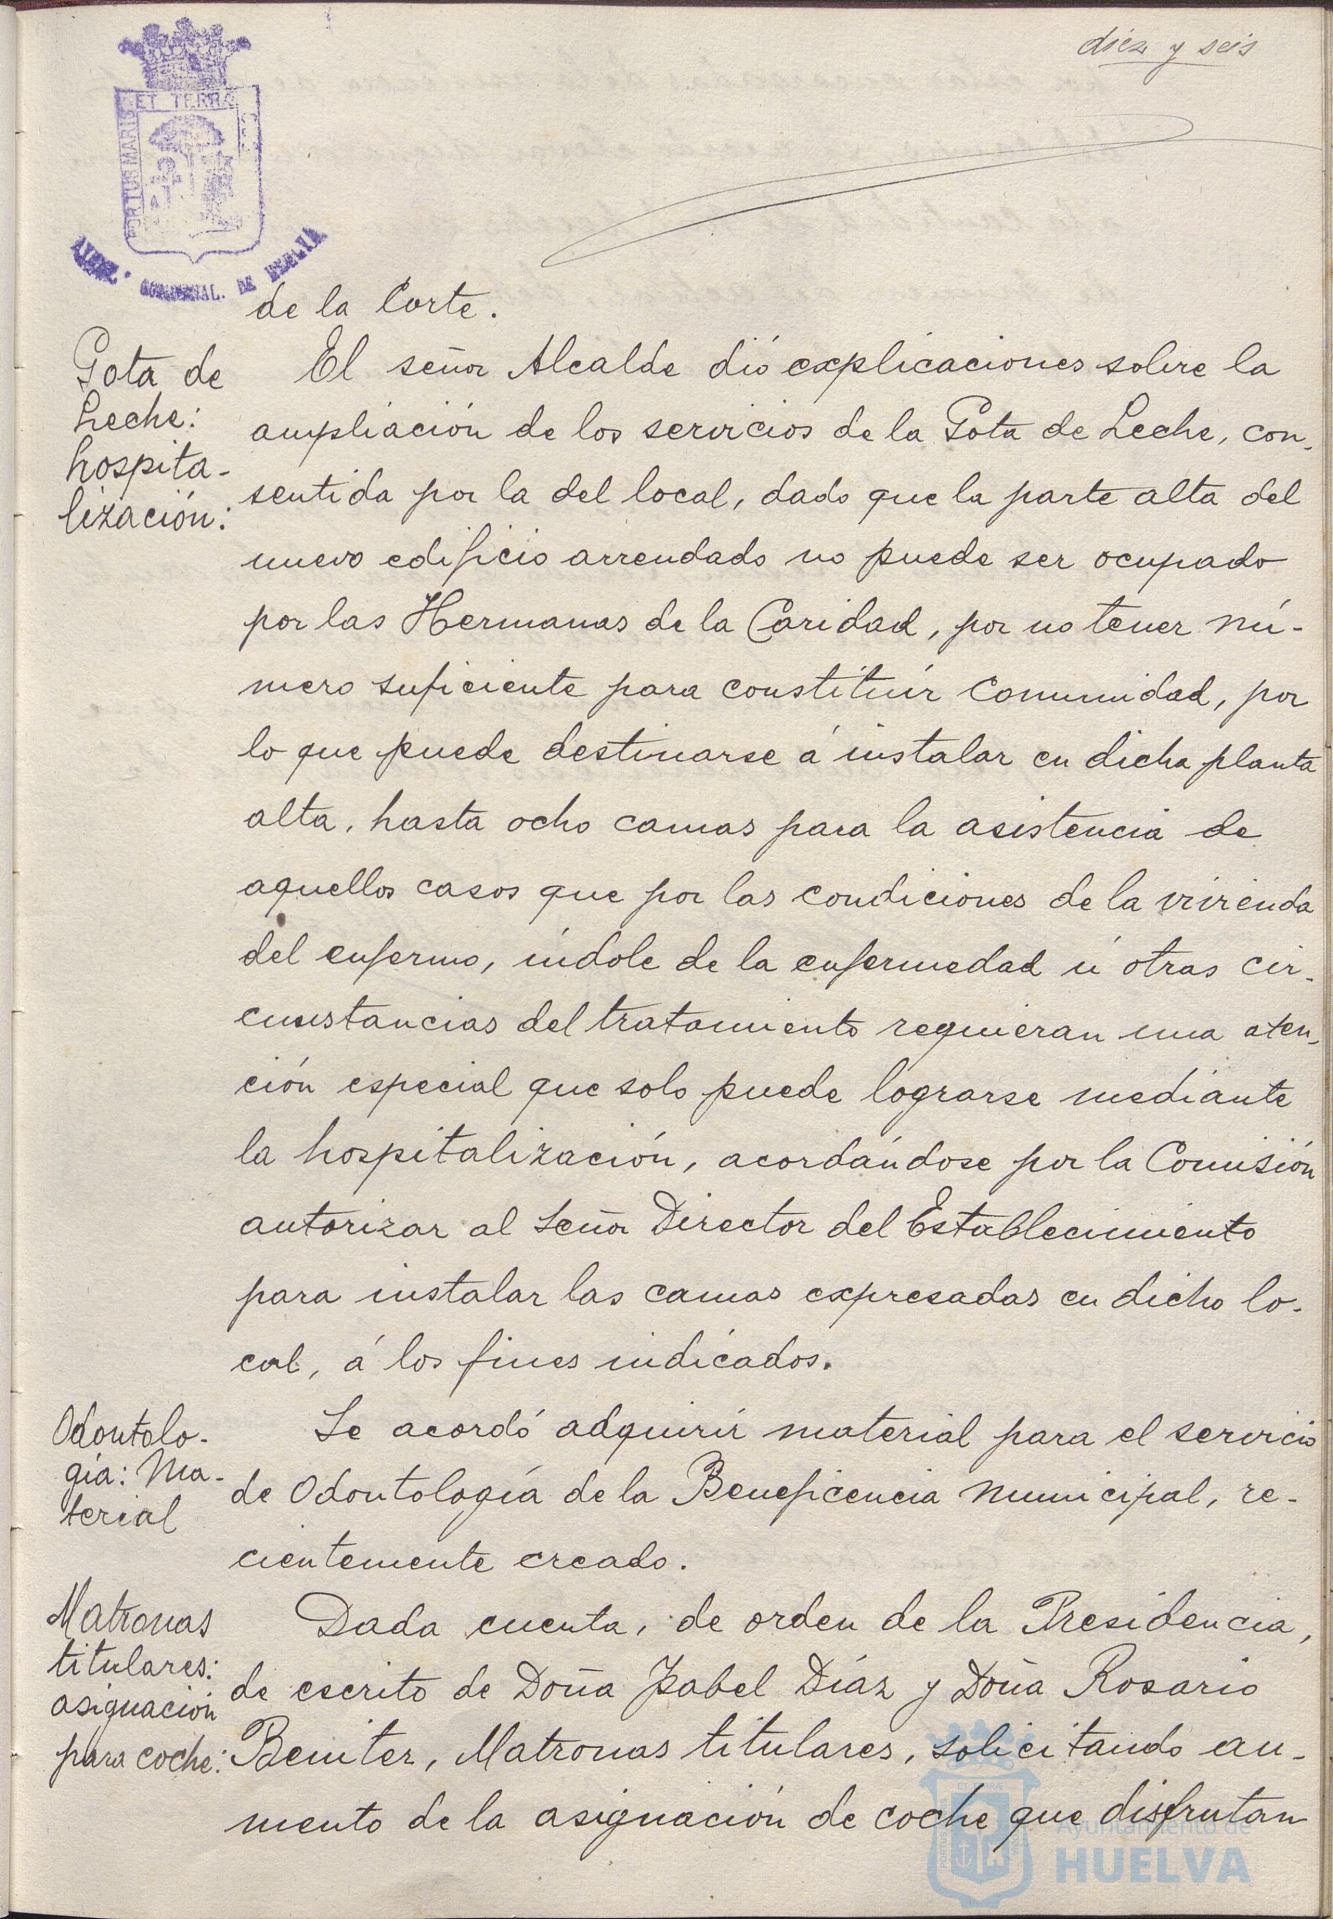 diez y seis
ET TERRÆ
PORTUS MARIS
AYUNT. CONSTITUCIONAL. DE HUELVA
de la Corte.
Gota de
Leche:
hospita-
lización:
El señor Alcalde dió explicaciones sobre la
ampliación de los servicios de la Gota de Leche, con-
sentida por la del local, dado que la parte alta del
nuevo edificio arrendado no puede ser ocupado
por las Hermanas de la Caridad, por no tener nú-
mero suficiente para constituír Comunidad, por
lo que puede destinarse á instalar en dicha planta
alta, hasta ocho camas para la asistencia de
aquellos casos que por las condiciones de la vivienda
del enfermo, índole de la enfermedad ú otras cir-
cunstancias del tratamiento requieran una aten-
ción especial que solo puede lograrse mediante
la hospitalización, acordándose por la Comisión
autorizar al Señor Director del Establecimiento
para instalar las camas expresadas en dicho lo-
cal, á los fines indicados.
Odontolo-
gía: Ma-
terial
Se acordó adquirir material para el servicio
de Odontología de la Beneficencia Municipal, re-
cientemente creado.
Matronas
titulares:
asignación
para coche:
Dada cuenta, de orden de la Presidencia,
de escrito de Doña Isabel Díaz y Doña Rosario
Benitez, Matronas titulares, solicitando au-
mento de la asignación de coche que disfrutan
Ayuntamiento de
HUELVA